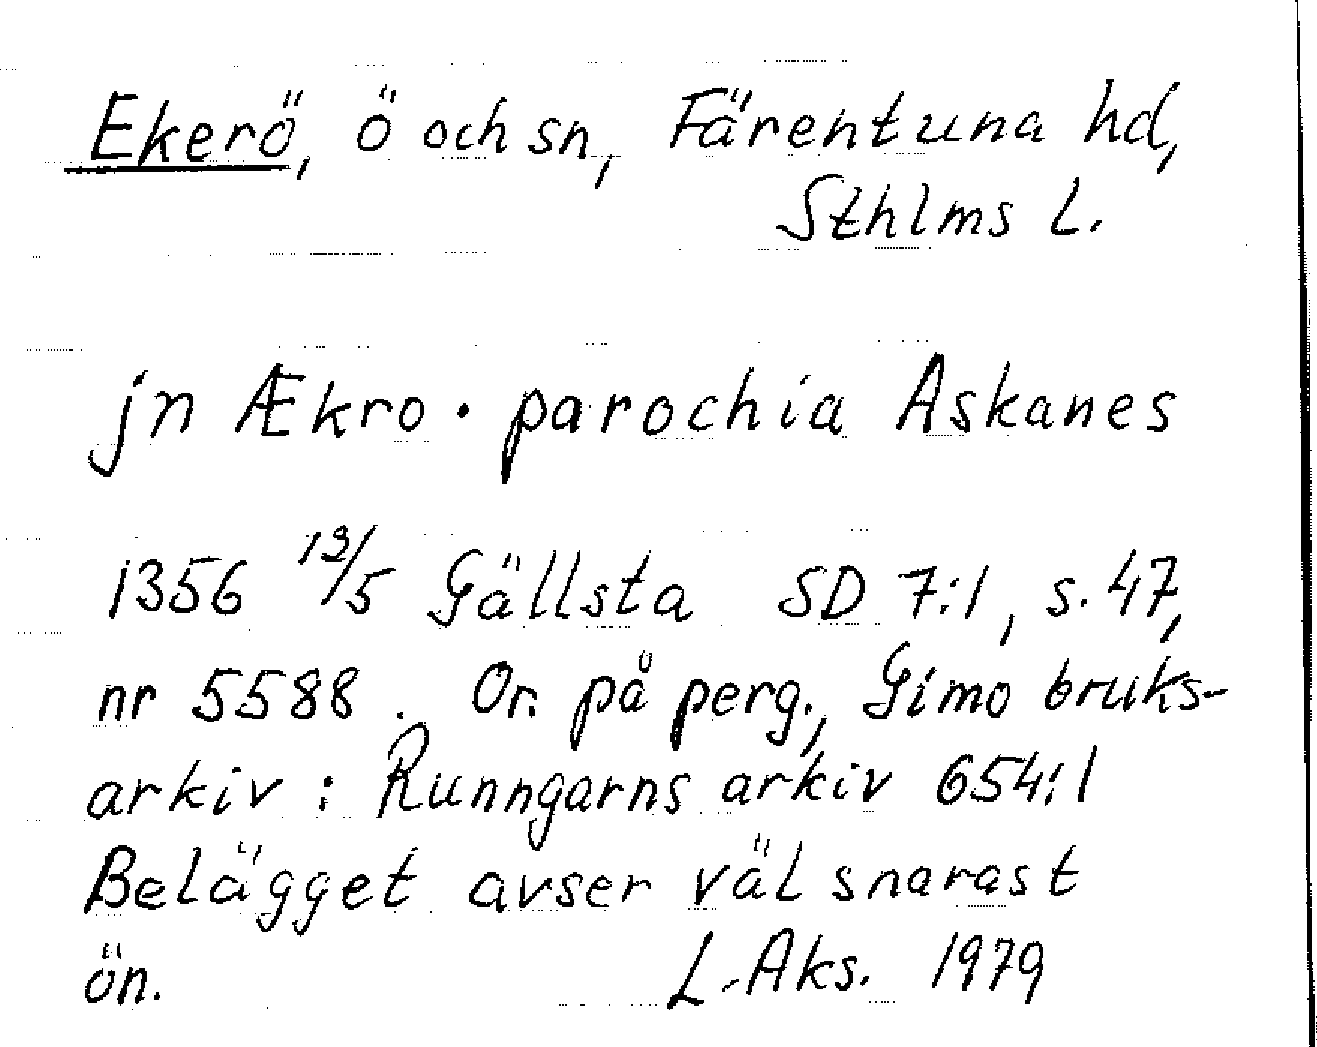 Ekerö, ö och sn, Färentuna hd,
Sthlms L.
jn Ækro · parochia Askanes
1356 13/5 Gällsta SD 7:1, s. 47,
nr 5588. Or. på perg., Gimo bruks-
arkiv: Runngarns arkiv 654:1
Belägget avser väl snarast
ön. L. Aks. 1979